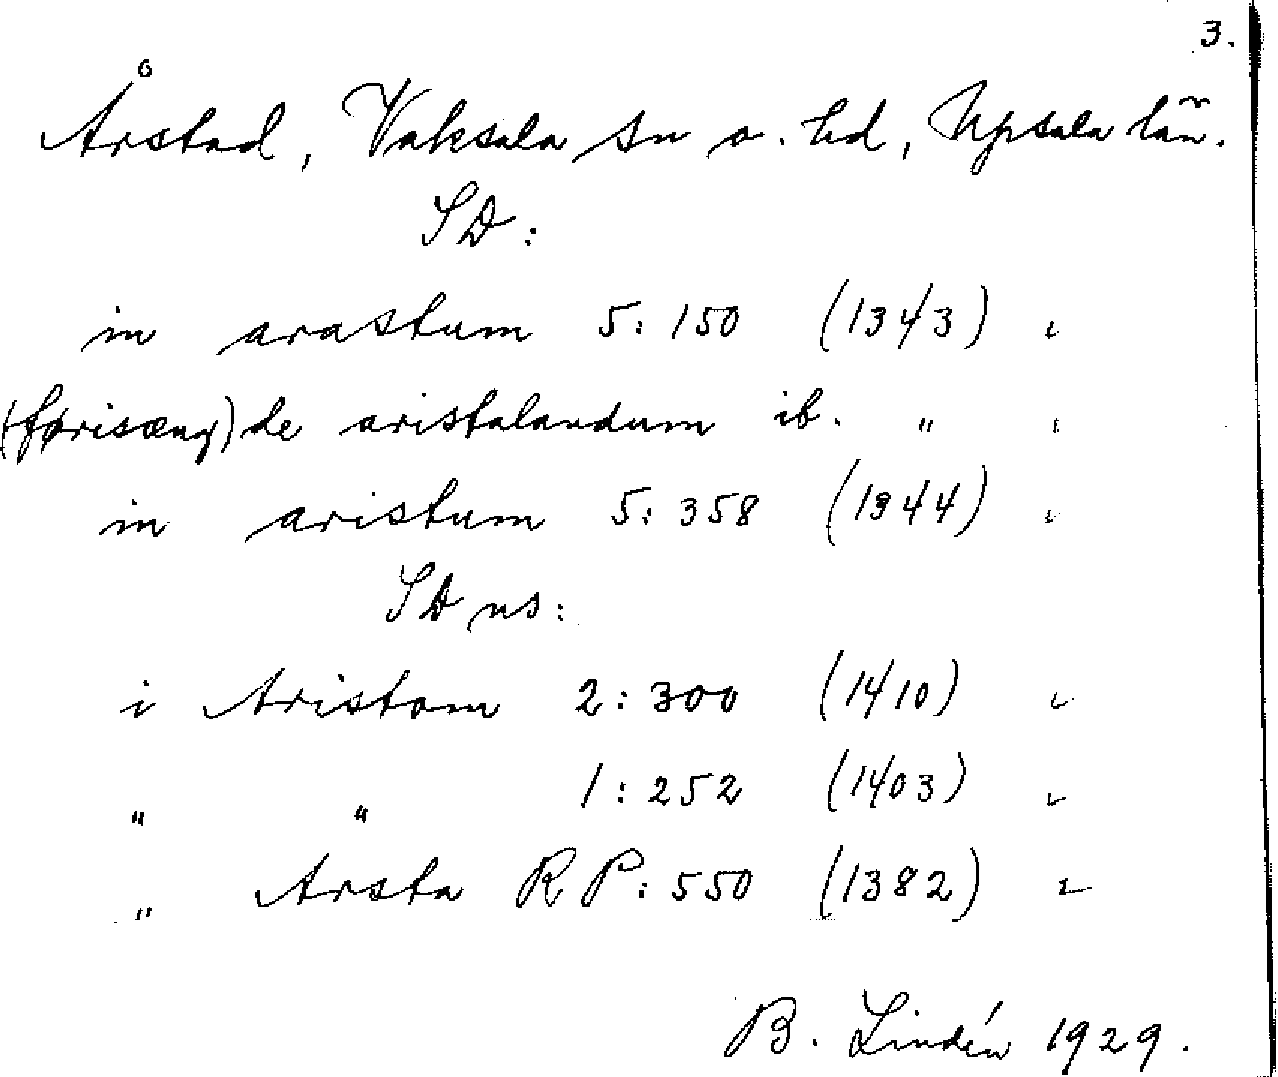 3.
Årstad, Vaksala sn o. hd, Upsala län.
SD:
in arastum 5:150 (1343)
(førisæng) de aristalandum ib. "
in aristum 5:358 (1344)
SDns:
i Aristom 2:300 (1410)
" " 1:252 (1403)
" Arsta RP:550 (1382)
B. Lindén 1929.